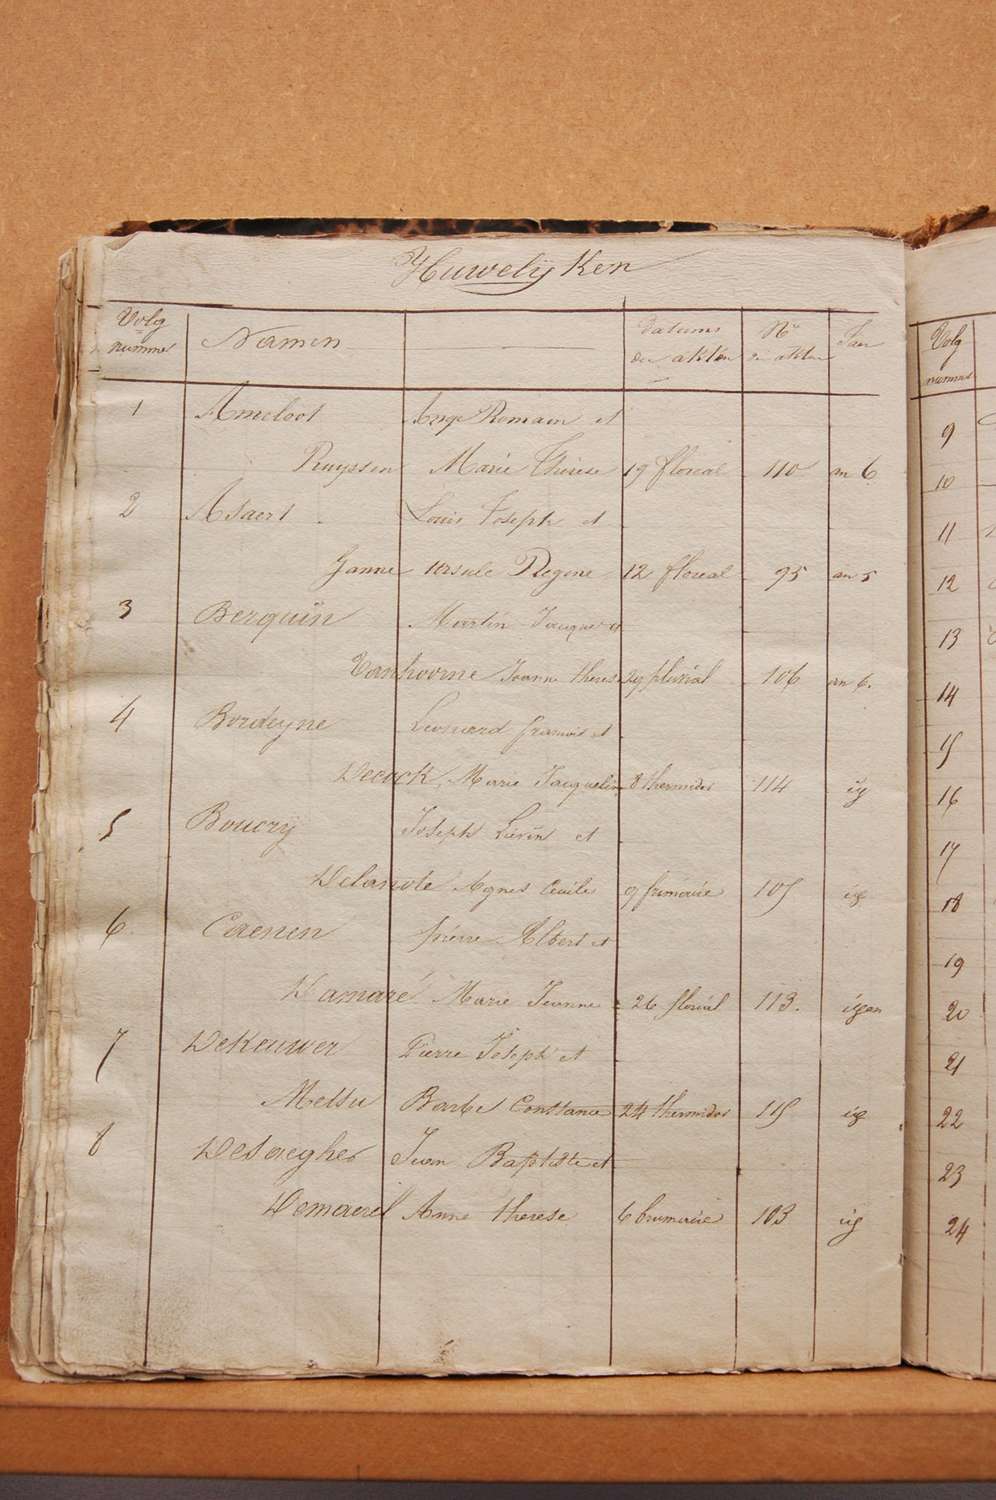 Huwelijken
Volg nummer Namen Datums der akten No der akten Jaer
1 Ameloot Ange Romain et
Ruyssen Marie Thérèse 19 floreal 110 an 6
2 Asaert Louis Joseph et
Janne Ursule Regine 12 floreal 95 an 5
3 Berquin Martin Jacques et
Vanhoorne Jeanne therese 29 pluvial 106 an 6.
4 Bordeyne Leonard francois et
Decock Marie Jacqueline 8 thermidor 114 id
5 Boucry Joseph Lievin et
Delanote Agnes Cecile 9 frimaire 105 id
6. Caenen pierre Albert et
Damaré Marie Jeanne 26 florial 113. id an
7 DeKeuwer Pierre Joseph et
Messu Barbe Constance 24 thermidor 115 id
8 Desaegher Jean Baptiste et
Demaeril Anne therese 6 brumaire 103 id
Volg nummer
9
10
11
12
13
14
15
16
17
18
19
20
21
22
23
24